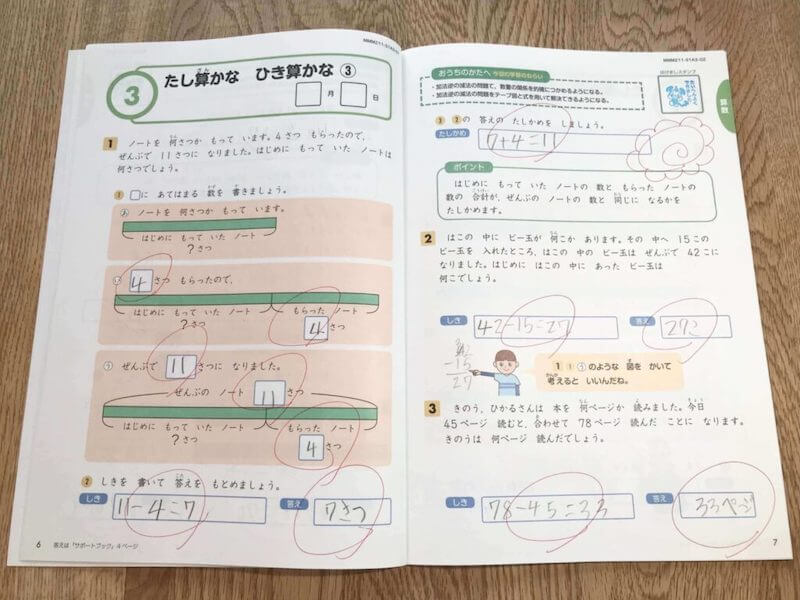 MMM211-01A3-02
3
たし算かな ひき算かな ③
月 日
1 ノートを 何さつか もって います。4さつ もらったので、
ぜんぶで 11さつに なりました。はじめに もって いた ノートは
何さつでしょう。
① □に あてはまる 数を 書きましょう。
あ ノートを 何さつか もって います。
はじめに もって いた ノート
?さつ
い 4 さつ もらったので、
はじめに もって いた ノート もらった ノート
?さつ 4 さつ
う ぜんぶで 11 さつに なりました。
ぜんぶの ノート 11 さつ
はじめに もって いた ノート もらった ノート
?さつ 4 さつ
② しきを 書いて 答えを もとめましょう。
しき 11-4=7 答え 7さつ
6 答えは「サポートブック」4ページ
MMM211-01A3-02
おうちのかたへ 今回の学習のねらい
・加法逆の減法の問題で、数量の関係を的確につかめるようになる。
・加法逆の減法の問題をテープ図と式を用いて解決できるようになる。
はげましスタンプ
算数
① ②の 答えの たしかめを しましょう。
たしかめ 7+4=11
ポイント
はじめに もって いた ノートの 数と もらった ノートの
数の 合計が、ぜんぶの ノートの 数と 同じに なるかを
たしかめます。
2 はこの 中に ビー玉が 何こか あります。その 中へ 15この
ビー玉を 入れたところ、はこの 中の ビー玉は ぜんぶで 42こに
なりました。はじめに はこの 中に あった ビー玉は
何こでしょう。
しき 42-15=27 答え 27こ
-15
27
1 ① うのような 図を かいて
考えると いいんだね。
3 きのう、ひかるさんは 本を 何ページか 読みました。今日
45ページ 読むと、合わせて 78ページ 読んだ ことに なります。
きのうは 何ページ 読んだでしょう。
しき 78-45=33 答え 33ページ
7